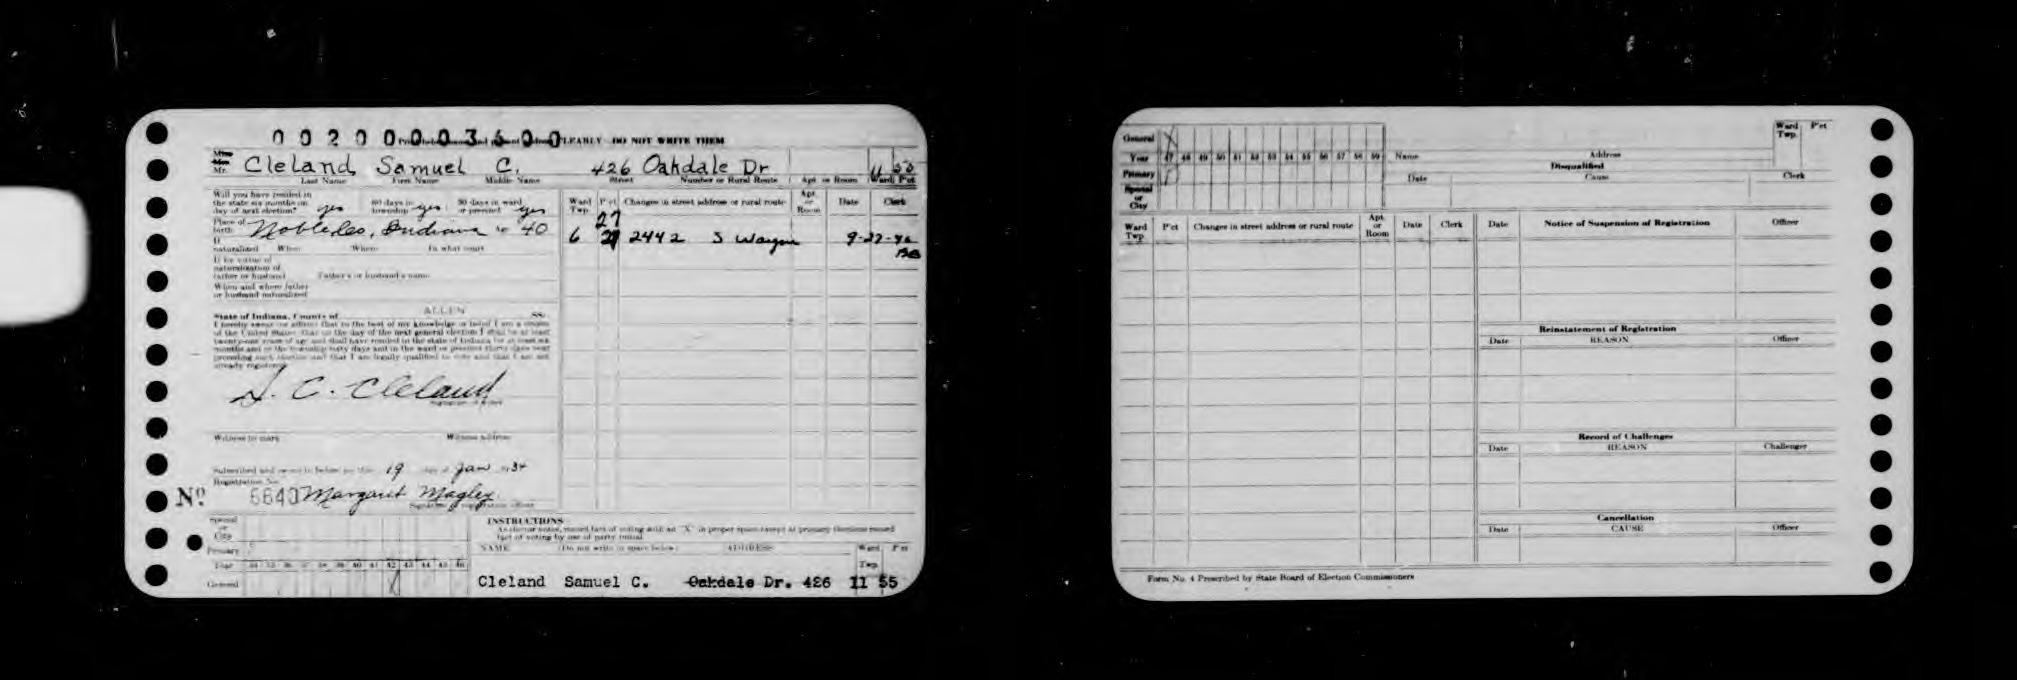 0 0 2 0 0 0 0 3 6 0 0 CLEARLY - DO NOT WRITE THEM
Miss
Mrs.
Mr. Cleland Samuel C. 426 Oakdale Dr 11 55
Last Name First Name Middle Name Street Number or Rural Route Apt. or Room Ward P'ct
Will you have resided in
the state six months on
day of next election? yes 60 days in township yes 30 days in ward or precinct yes
Place of birth Nobleles, Indiana 40
If naturalized When Where In what court
If by virtue of
naturalization of
father or husband Father's or husband's name
When and where father
or husband naturalized
State of Indiana, County of ALLEN ss.
I hereby swear (or affirm) that to the best of my knowledge or belief I am a citizen
of the United States; that on the day of the next general election I shall be at least
twenty-one years of age and shall have resided in the state of Indiana for at least six
months and in the township sixty days and in the ward or precinct thirty days next
preceding such election and that I am legally qualified to vote and that I am not
already registered.
S. C. Cleland
Witness to mark Witness address
Subscribed and sworn to before me this 19 day of Jan 34
Registration No.
No. 6640 Margaret Magley
Signature of registration officer
Ward Twp. P'ct Changes in street address or rural route Apt. or Room Date Clerk
27
6 2442 S Wayne 9-27-46
BB
Special or City
Primary
Year 34 35 36 37 38 39 40 41 42 43 44 45 46
General
INSTRUCTIONS
As elector votes, record fact of voting with an "X" in proper space except at primary elections record
fact of voting by use of party initial
NAME (Do not write in space below) ADDRESS Ward Twp. P'ct
Cleland Samuel C. Oakdale Dr. 426 11 55
General
Year 47 48 49 50 51 52 53 54 55 56 57 58 59
Primary
Special or City
Name Address Ward Twp. P'ct
Disqualified
Date Cause Clerk
Ward Twp. P'ct Changes in street address or rural route Apt. or Room Date Clerk
Date Notice of Suspension of Registration Officer
Reinstatement of Registration
Date REASON Officer
Record of Challenges
Date REASON Challenger
Cancellation
Date CAUSE Officer
Form No. 4 Prescribed by State Board of Election Commissioners